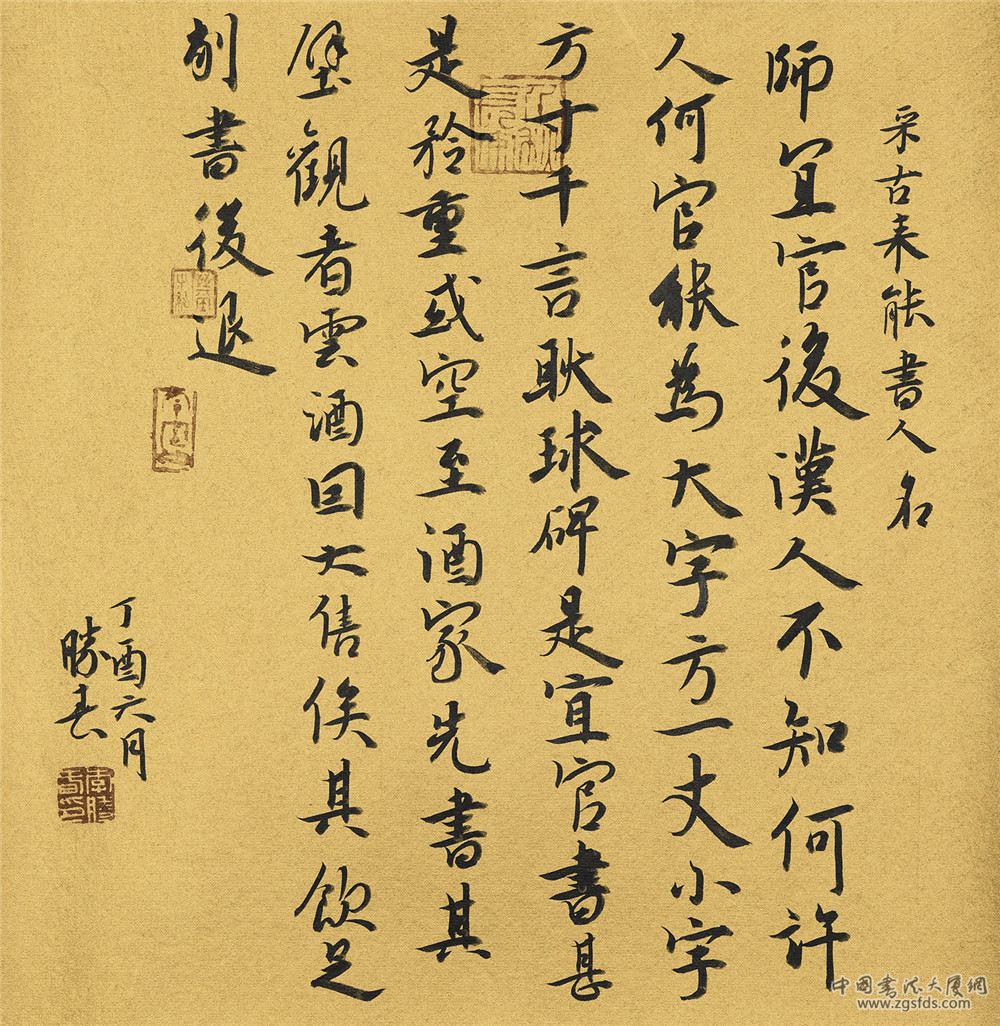 采古来能書人名
師宜官後漢人不知何許
人何官能為大字方一丈小字
方寸千言耿球碑是宜官書甚
是矜重或空至酒家先書其
壁觀者雲酒因大售俟其飲足
削書後退
丁酉六月
勝春
中國書法大廈網
www.zgsfds.com